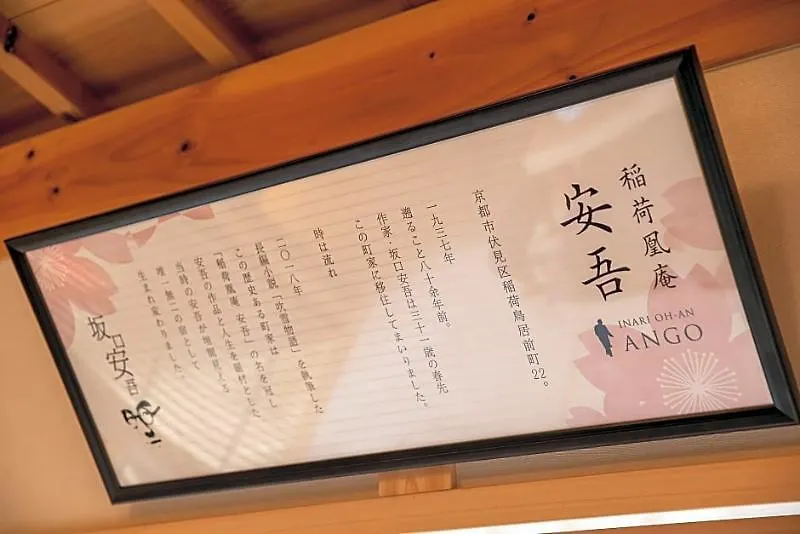 稲荷凰庵
安吾
INARI OH-AN
ANGO
京都市伏見区稲荷鳥居前町22。
一九三七年
遡ること八十余年前。
作家・坂口安吾は三十一歳の春先
この町家に移住してまいりました。
時は流れ
二〇一八年
長編小説「吹雪物語」を執筆した
この歴史ある町家は
「稲荷凰庵、安吾」の名を冠し
安吾の作品と人生を題材とした
当時の安吾が垣間見える
唯一無二の宿として
生まれ変わりました。
坂口安吾